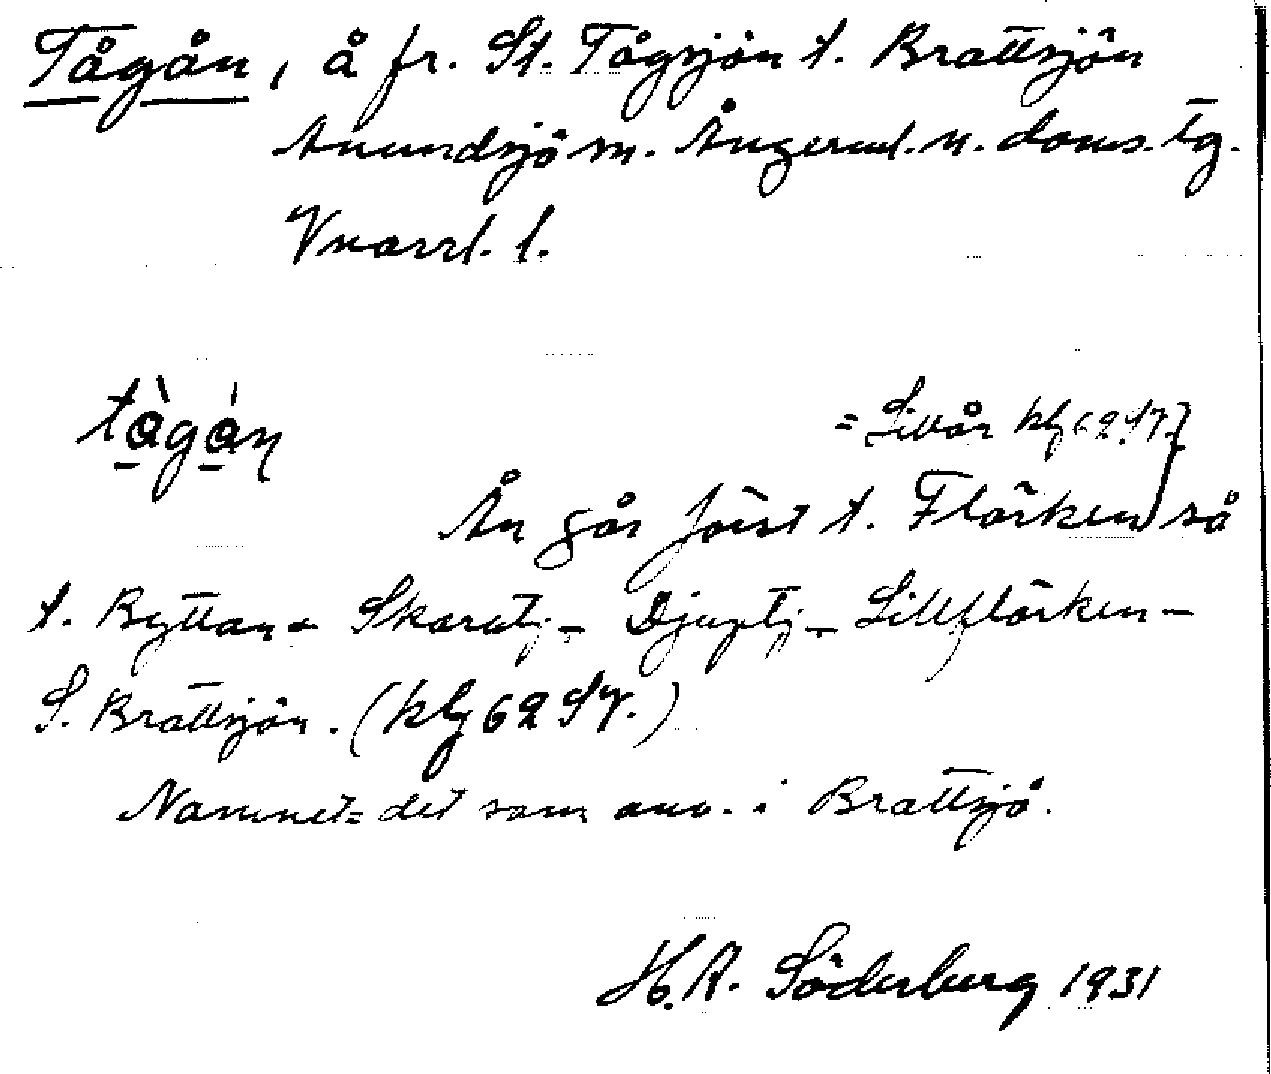 Tågån, å fr. St. Tågsjön t. Brattsjön
Anundsjö sn. Ångerml. n. doms. tg.
Vnorrl. l.
tågån
= Lillån kbl 62 SV.
Ån går först t. Flärken så
t. Byttan - Skaratj - Djuptj - Lillflärken -
S. Brattsjön. (kbl 62 SV.)
Namnet = det som anv. i Brattsjö.
H. A. Söderberg 1931